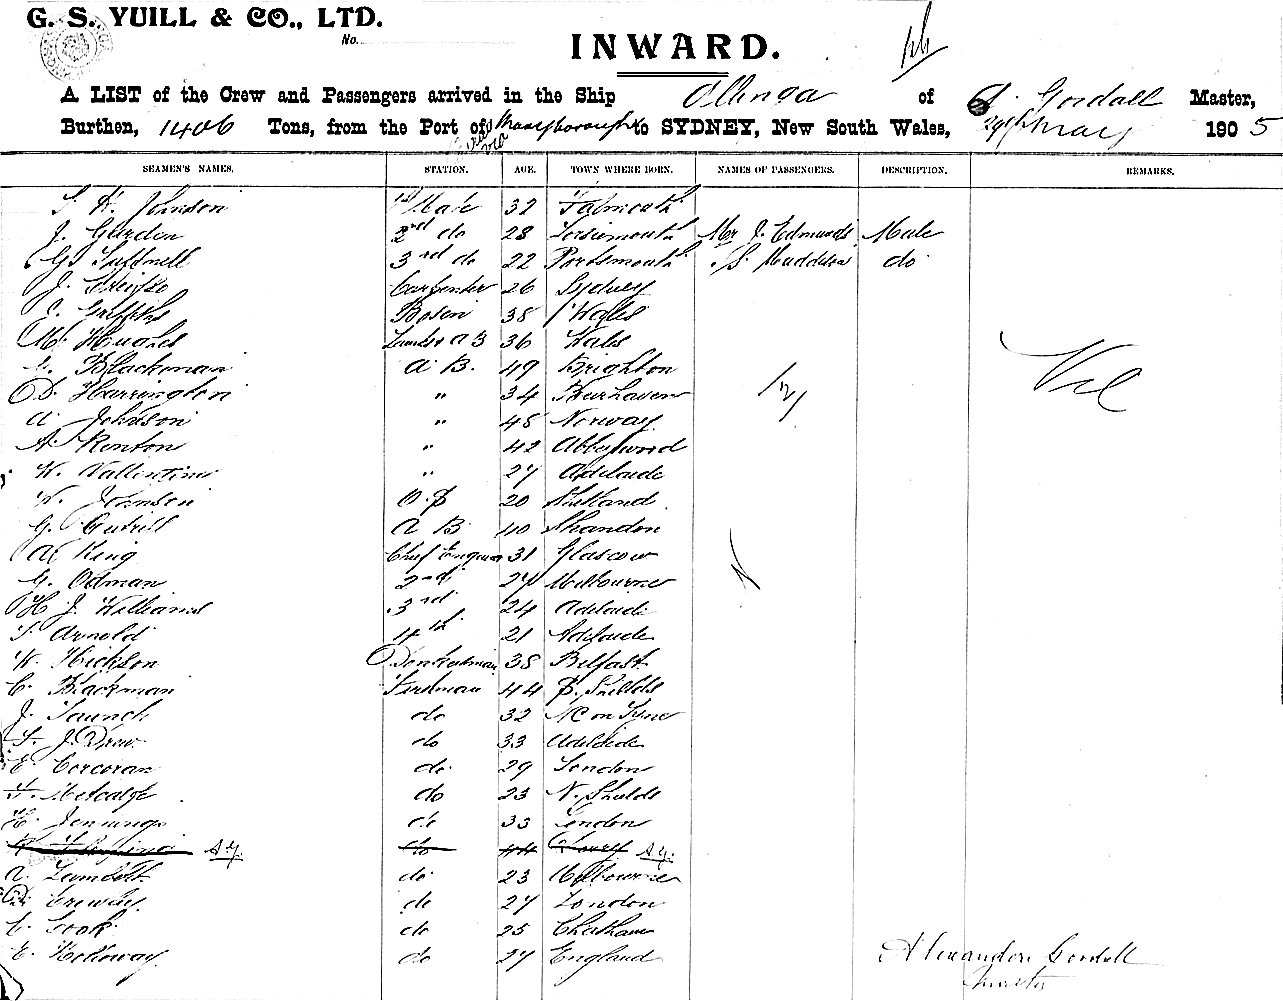 G. S. YUILL & CO., LTD.
No.
INWARD.
A LIST of the Crew and Passengers arrived in the Ship of A. Gordall Master,
Burthen, 1406 Tons, from the Port of Maryborough to SYDNEY, New South Wales, 29th May 1905
via
SEAMEN'S NAMES. STATION. AGE. TOWN WHERE BORN. NAMES OF PASSENGERS. DESCRIPTION. REMARKS.
Johnson 1st Mate 32 Falmouth
J. Garden 2nd do 28 Mr J. Edmunds Male
G. 3rd do 22 Portsmouth S. do
J. Carpenter 26 Sydney
Griffiths Bosun 38 Wales
M. Hughes A B 36 Wales
Blackman A B. 49 Brighton
D. Harrington " 34
A Johnson " 48 Norway
A. Renton " 42 Abbeywood
W. Vallentine " 27 Adelaide
W. Johnson O.S 20 Shetland
G. A B 40 Shandon
A King Chief Engineer 31 Glascow
G. Odman 2nd 27 Melbourne
H J. Williams 3rd 24 Adelaide
Arnold 4th 21 Adelaide
W. Hickson Donkeyman 38 Belfast
C. Blackman Fireman 44 S. Shields
J. do 32 NC on Tyne
F. J. Drew do 33 Adelaide
E. Corcoran do 29 London
F. Metcalfe do 23 N. Shields
H. Jennings do 33 London
do 44
A. do 23 Melbourne
do 27 London
C. Cook do 25 Chatham
E. Holloway do 27 England
Nil
Alexander Gordall
Master